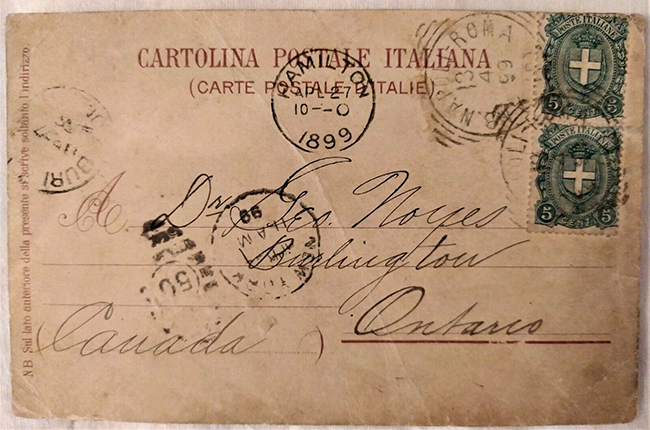 CARTOLINA POSTALE ITALIANA
(CARTE POSTALE D'ITALIE)
NB Sul lato anteriore della presente si scrive soltanto l'indirizzo
HAMILTON
AP 27
10-0
1899
ROMA
13
4
99
POSTE ITALIANE
5 5
CENT.
POSTE ITALIANE
5 5
CENT.
99
NEW YORK
50
A Dr. Geo. Noyes
Burlington
Ontario
(Canada)